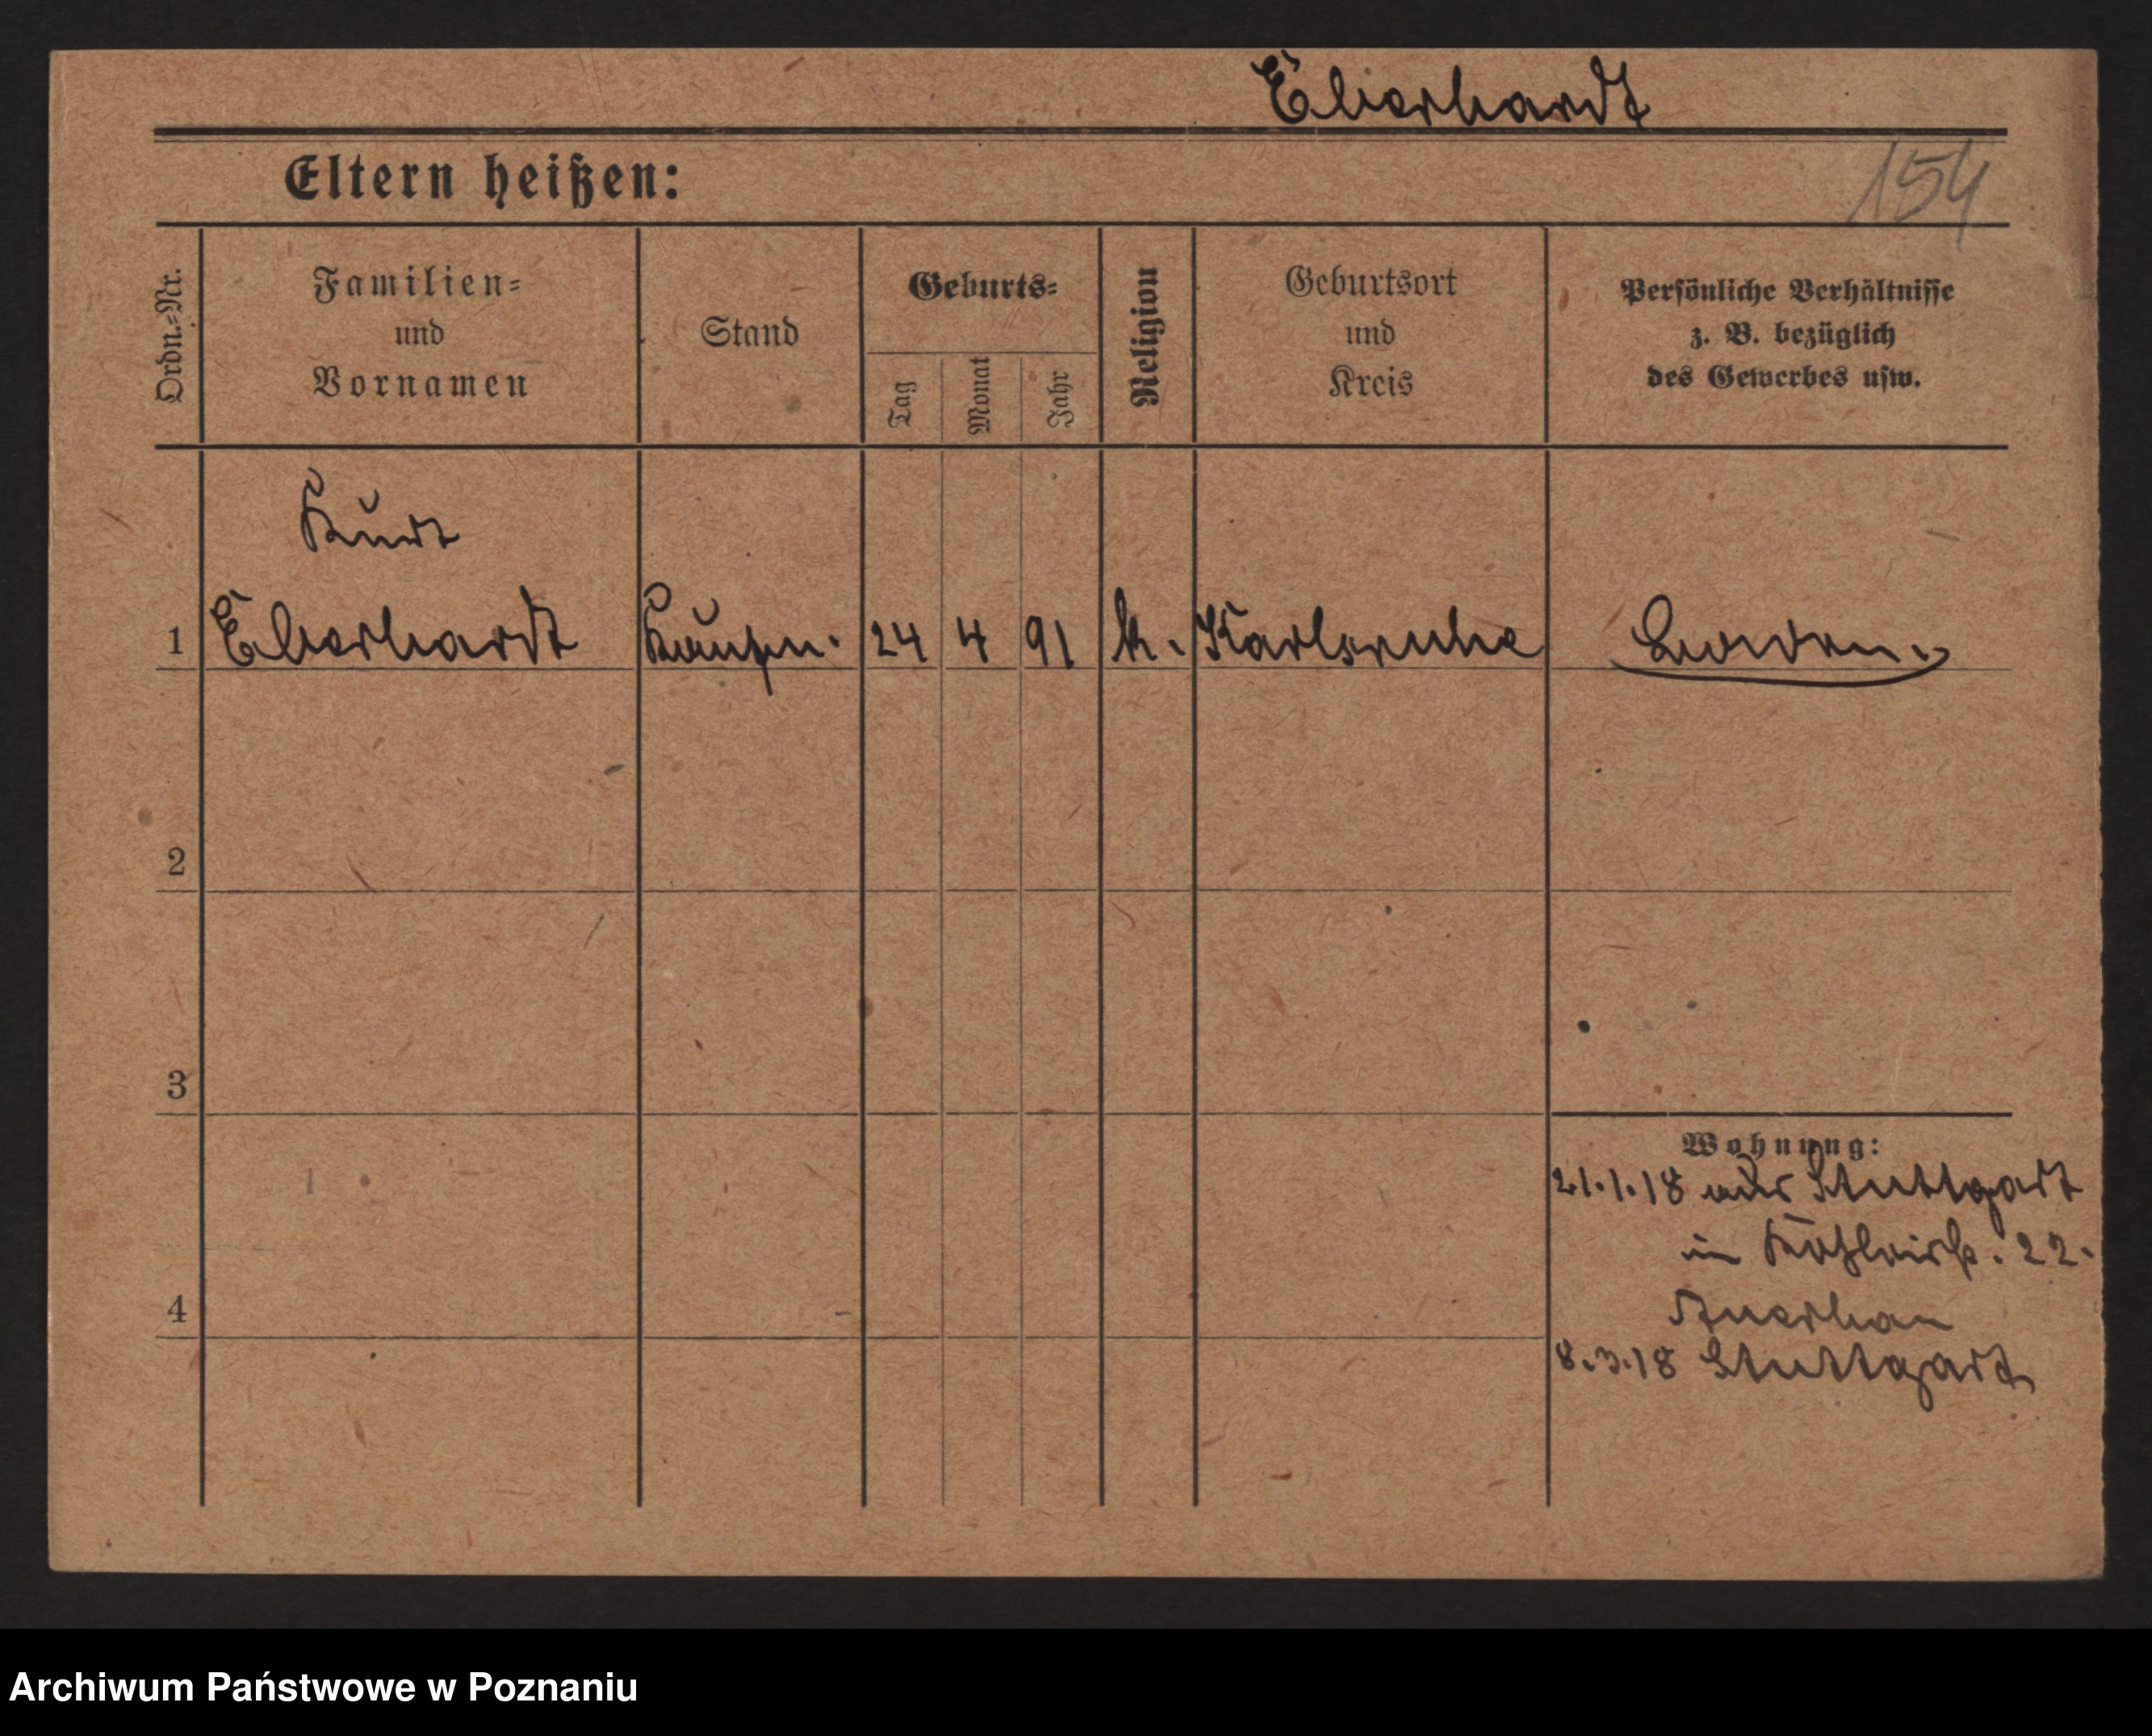 Eberhardt
Eltern heißen:
154
Ordn.=Nr.
Familien=
und
Vornamen
Stand
Geburts=
Tag
Monat
Jahr
Religion
Geburtsort
und
Kreis
Persönliche Verhältnisse
z. B. bezüglich
des Gewerbes usw.
Kurt
1 Eberhardt Kaufm. 24 4 91 k. Karlsruhe
2
3
4
Wohnung:
21.1.18 aus Stuttgart
in 22.
8.3.18 Stuttgart
Archiwum Państwowe w Poznaniu